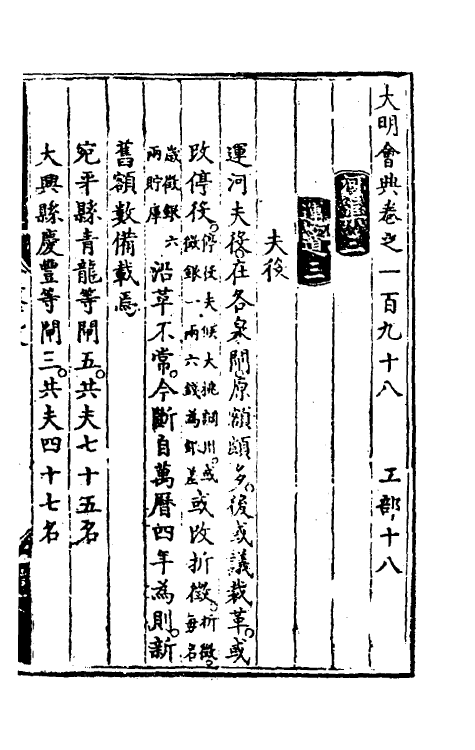 大明會典卷之一百九十八　工部十八
河渠三
運道三
夫役
運河夫役。在各泉閘。原額頗多。後或議裁革。或
改停役。停役夫候大挑調用。或徵銀一兩六錢為雇差或改折徵。折徵。每名
歲徵銀六兩貯庫沿革不常。今斷自萬曆四年為則。新
舊額數備載焉
宛平縣青龍等閘五。共夫七十五名
大興縣慶豐等閘三。共夫四十七名